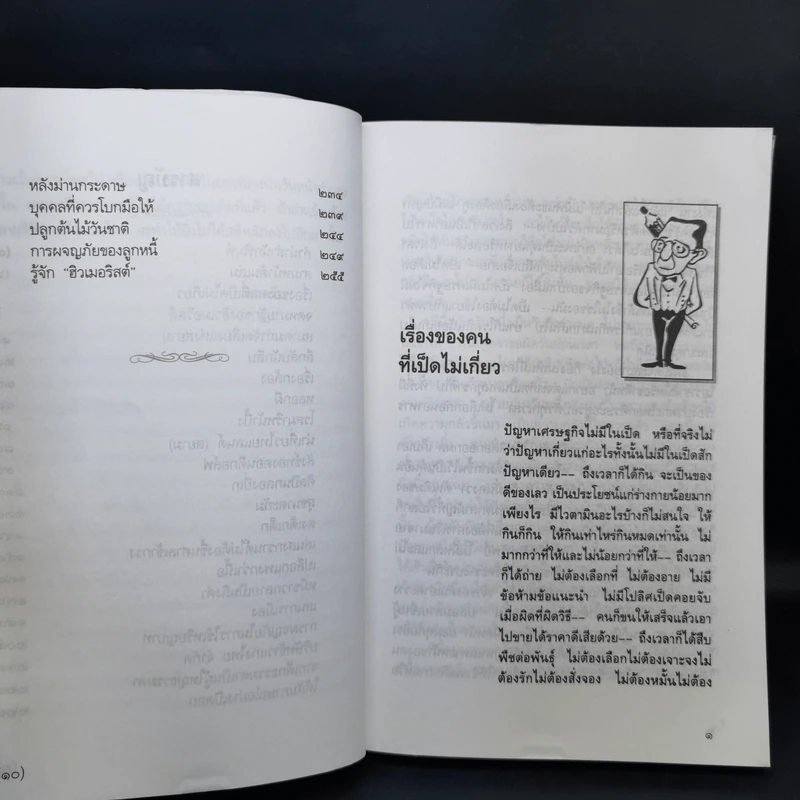 หลังม่านกระดาษ ๒๓๔
บุคคลที่ควรโบกมือให้ ๒๓๙
ปลูกต้นไม้วันชาติ ๒๔๔
การผจญภัยของลูกหนี้ ๒๔๙
รู้จัก “ฮิวเมอริสต์” ๒๕๕
(๑๐)
เรื่องของคน
ที่เป็ดไม่เกี่ยว
ปัญหาเศรษฐกิจไม่มีในเป็ด หรือที่จริงไม่
ว่าปัญหาเกี่ยวแก่อะไรทั้งนั้นไม่มีในเป็ดสัก
ปัญหาเดียว-- ถึงเวลาก็ได้กิน จะเป็นของ
ดีของเลว เป็นประโยชน์แก่ร่างกายน้อยมาก
เพียงไร มีไวตามินอะไรบ้างก็ไม่สนใจ ให้
กินก็กิน ให้กินเท่าไหร่กินหมดเท่านั้น ไม่
มากกว่าที่ให้และไม่น้อยกว่าที่ให้-- ถึงเวลา
ก็ได้ถ่าย ไม่ต้องเลือกที่ ไม่ต้องอาย ไม่มี
ข้อห้ามข้อแนะนำ ไม่มีโปลิศเป็นคอยจับ
เมื่อผิดที่ผิดวิธี-- คนก็ขนให้เสร็จแล้วเอา
ไปขายได้ราคาดีเสียด้วย-- ถึงเวลาก็ได้สืบ
พืชต่อพันธุ์ ไม่ต้องเลือกไม่ต้องเจาะจงไม่
ต้องรักไม่ต้องสั่งจอง ไม่ต้องหมั้นไม่ต้อง
๑